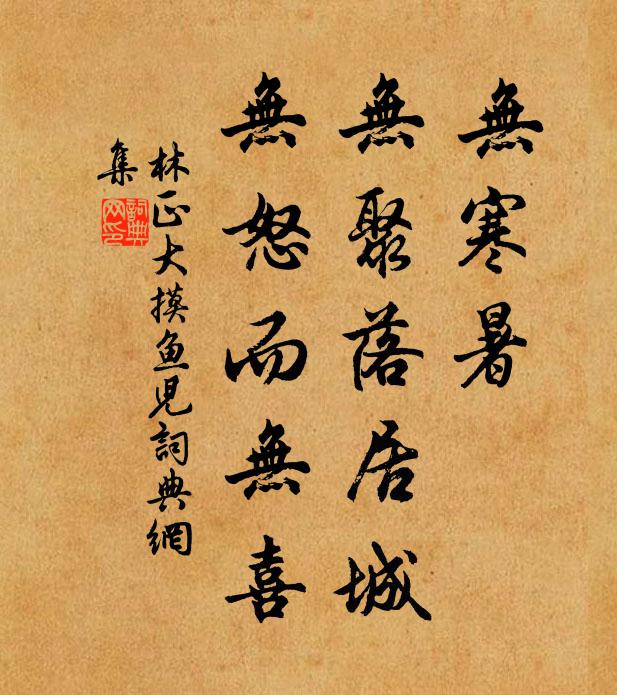 無寒暑
無聚落居城
無怒而無喜
林正大摸魚兒詞典網
集
詞典網印